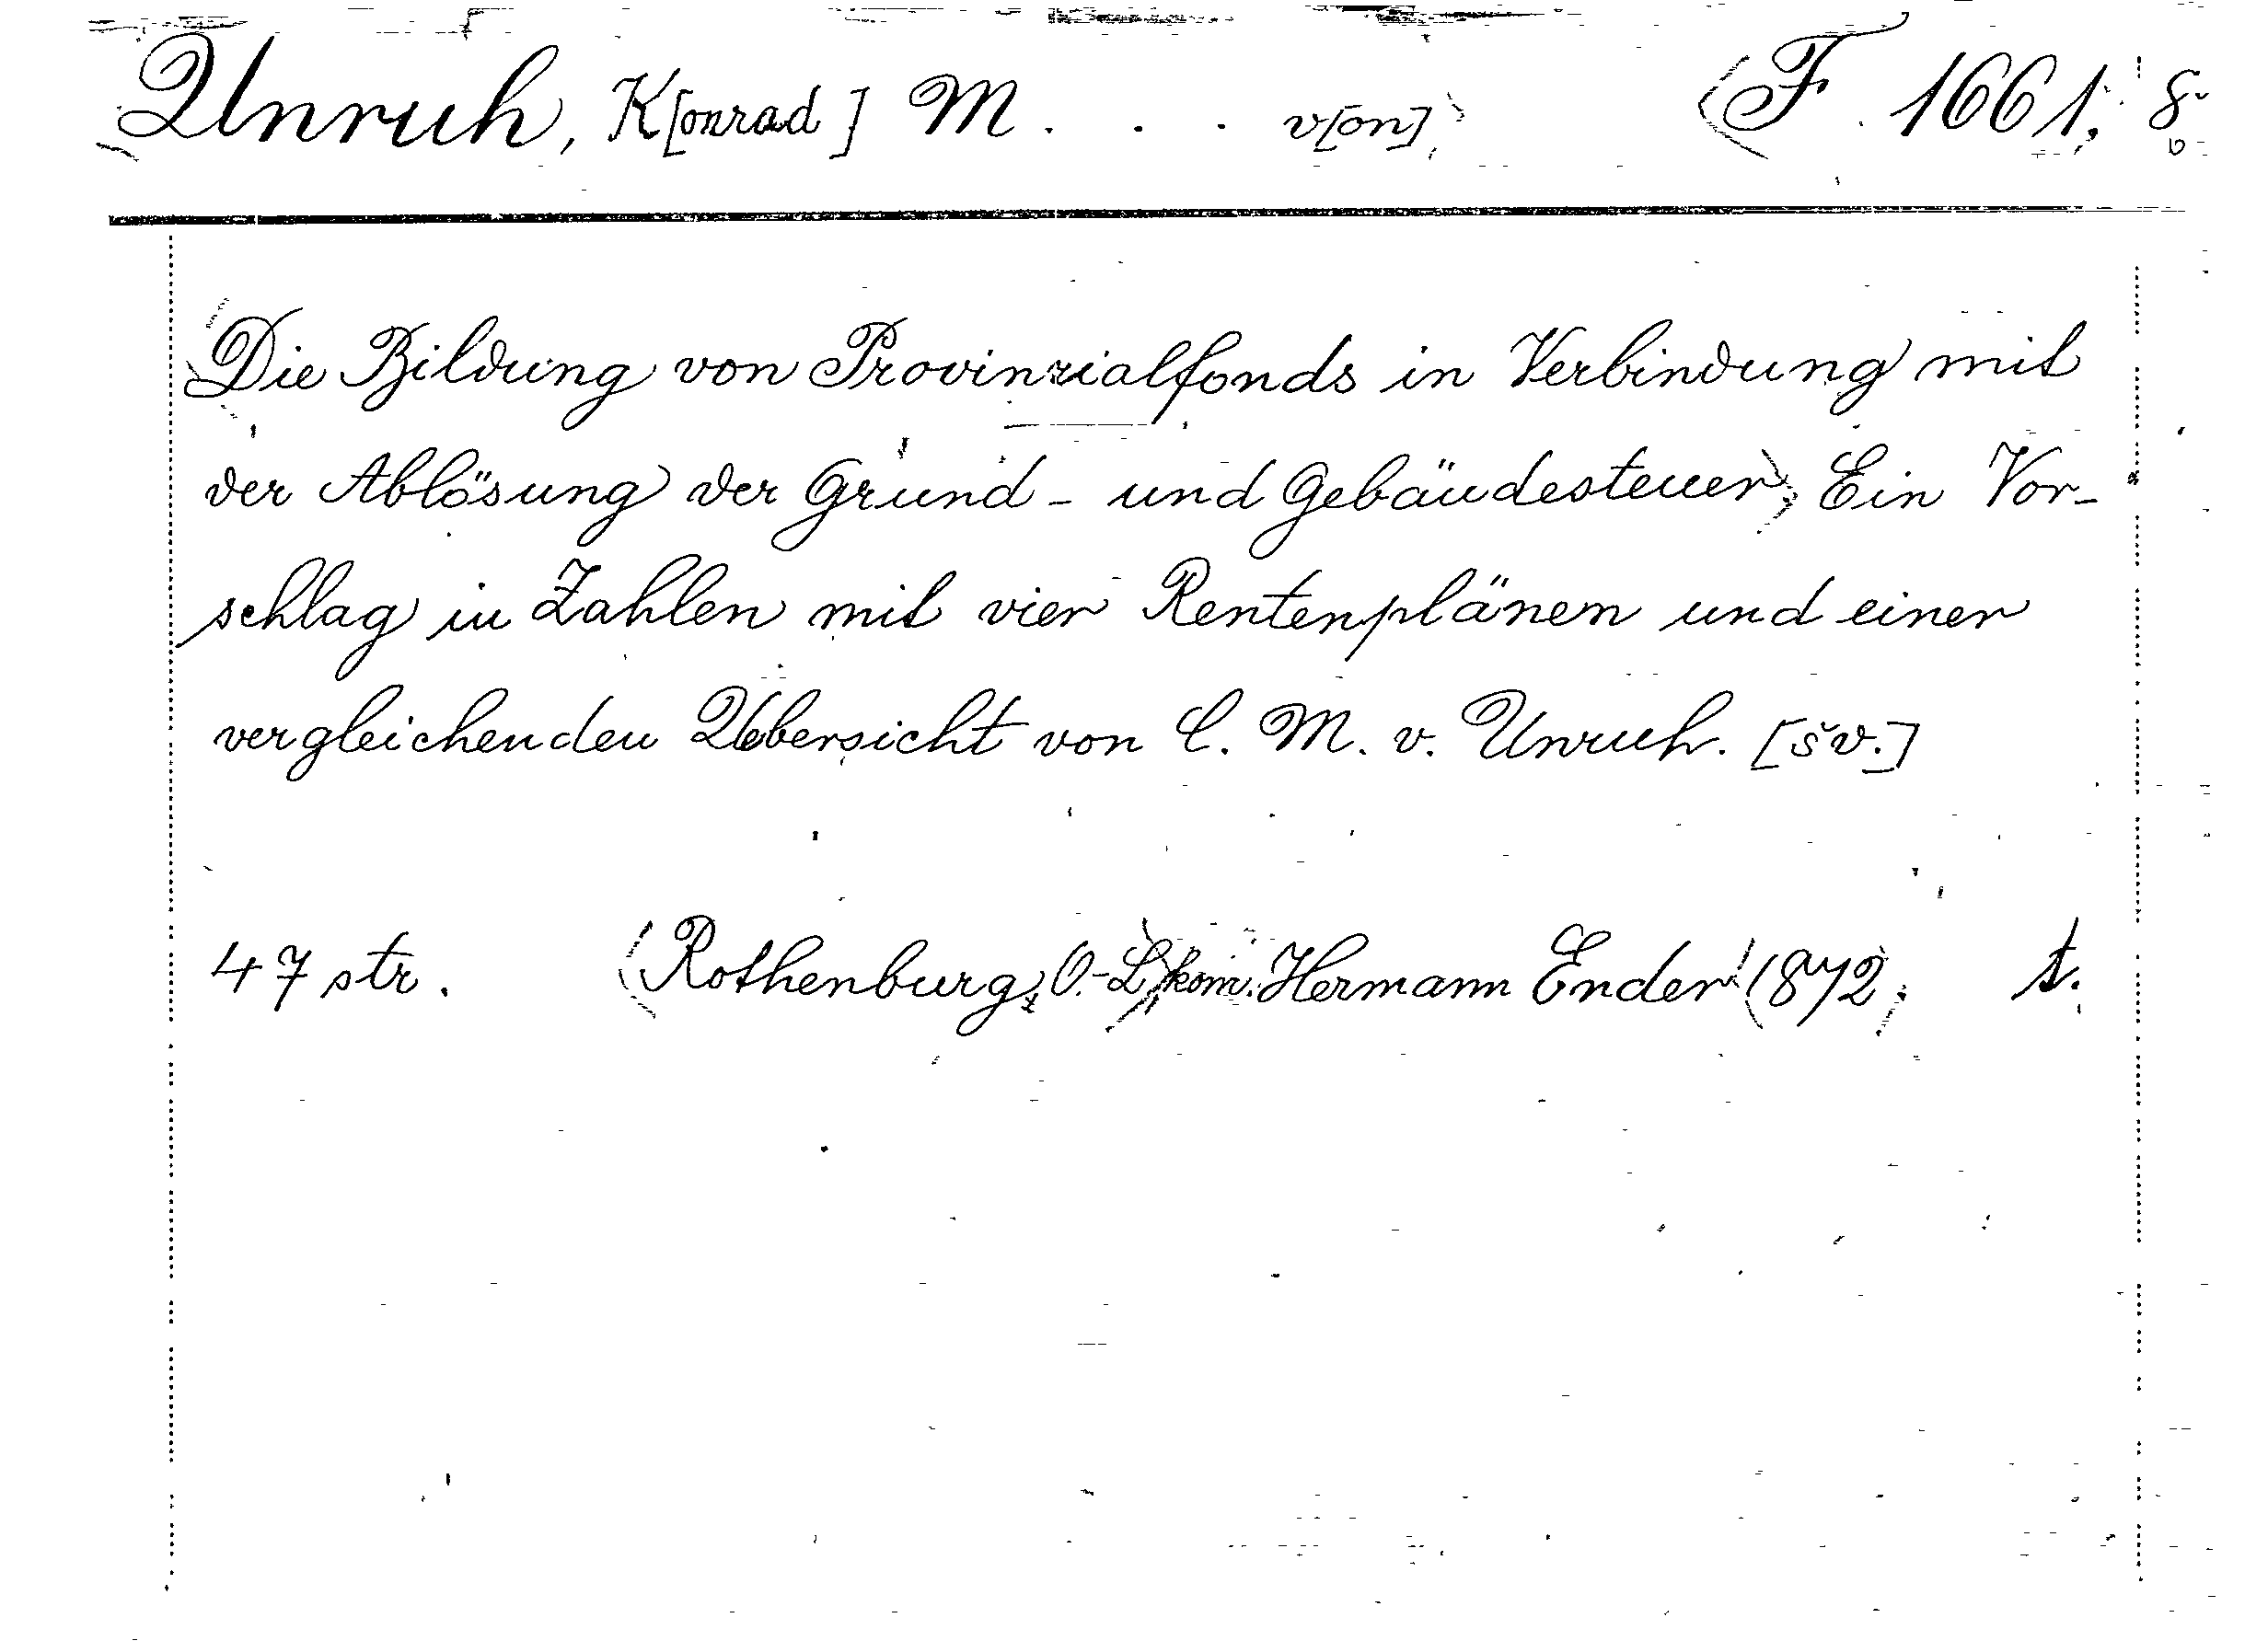 Unruh, K[onrad] M. . . v[on] F 1661, 8°
Die Bildung von Provinzialfonds in Verbindung mit
der Ablösung der Grund- und Gebäudesteuer, Ein Vor-
schlag in Zahlen mit vier Rentenplänen und einer
vergleichenden Uebersicht von C. M. v. Unruh. [šv.]
47 str. Rothenburg, O.-L, kom. Hermann Ender 1872, t.